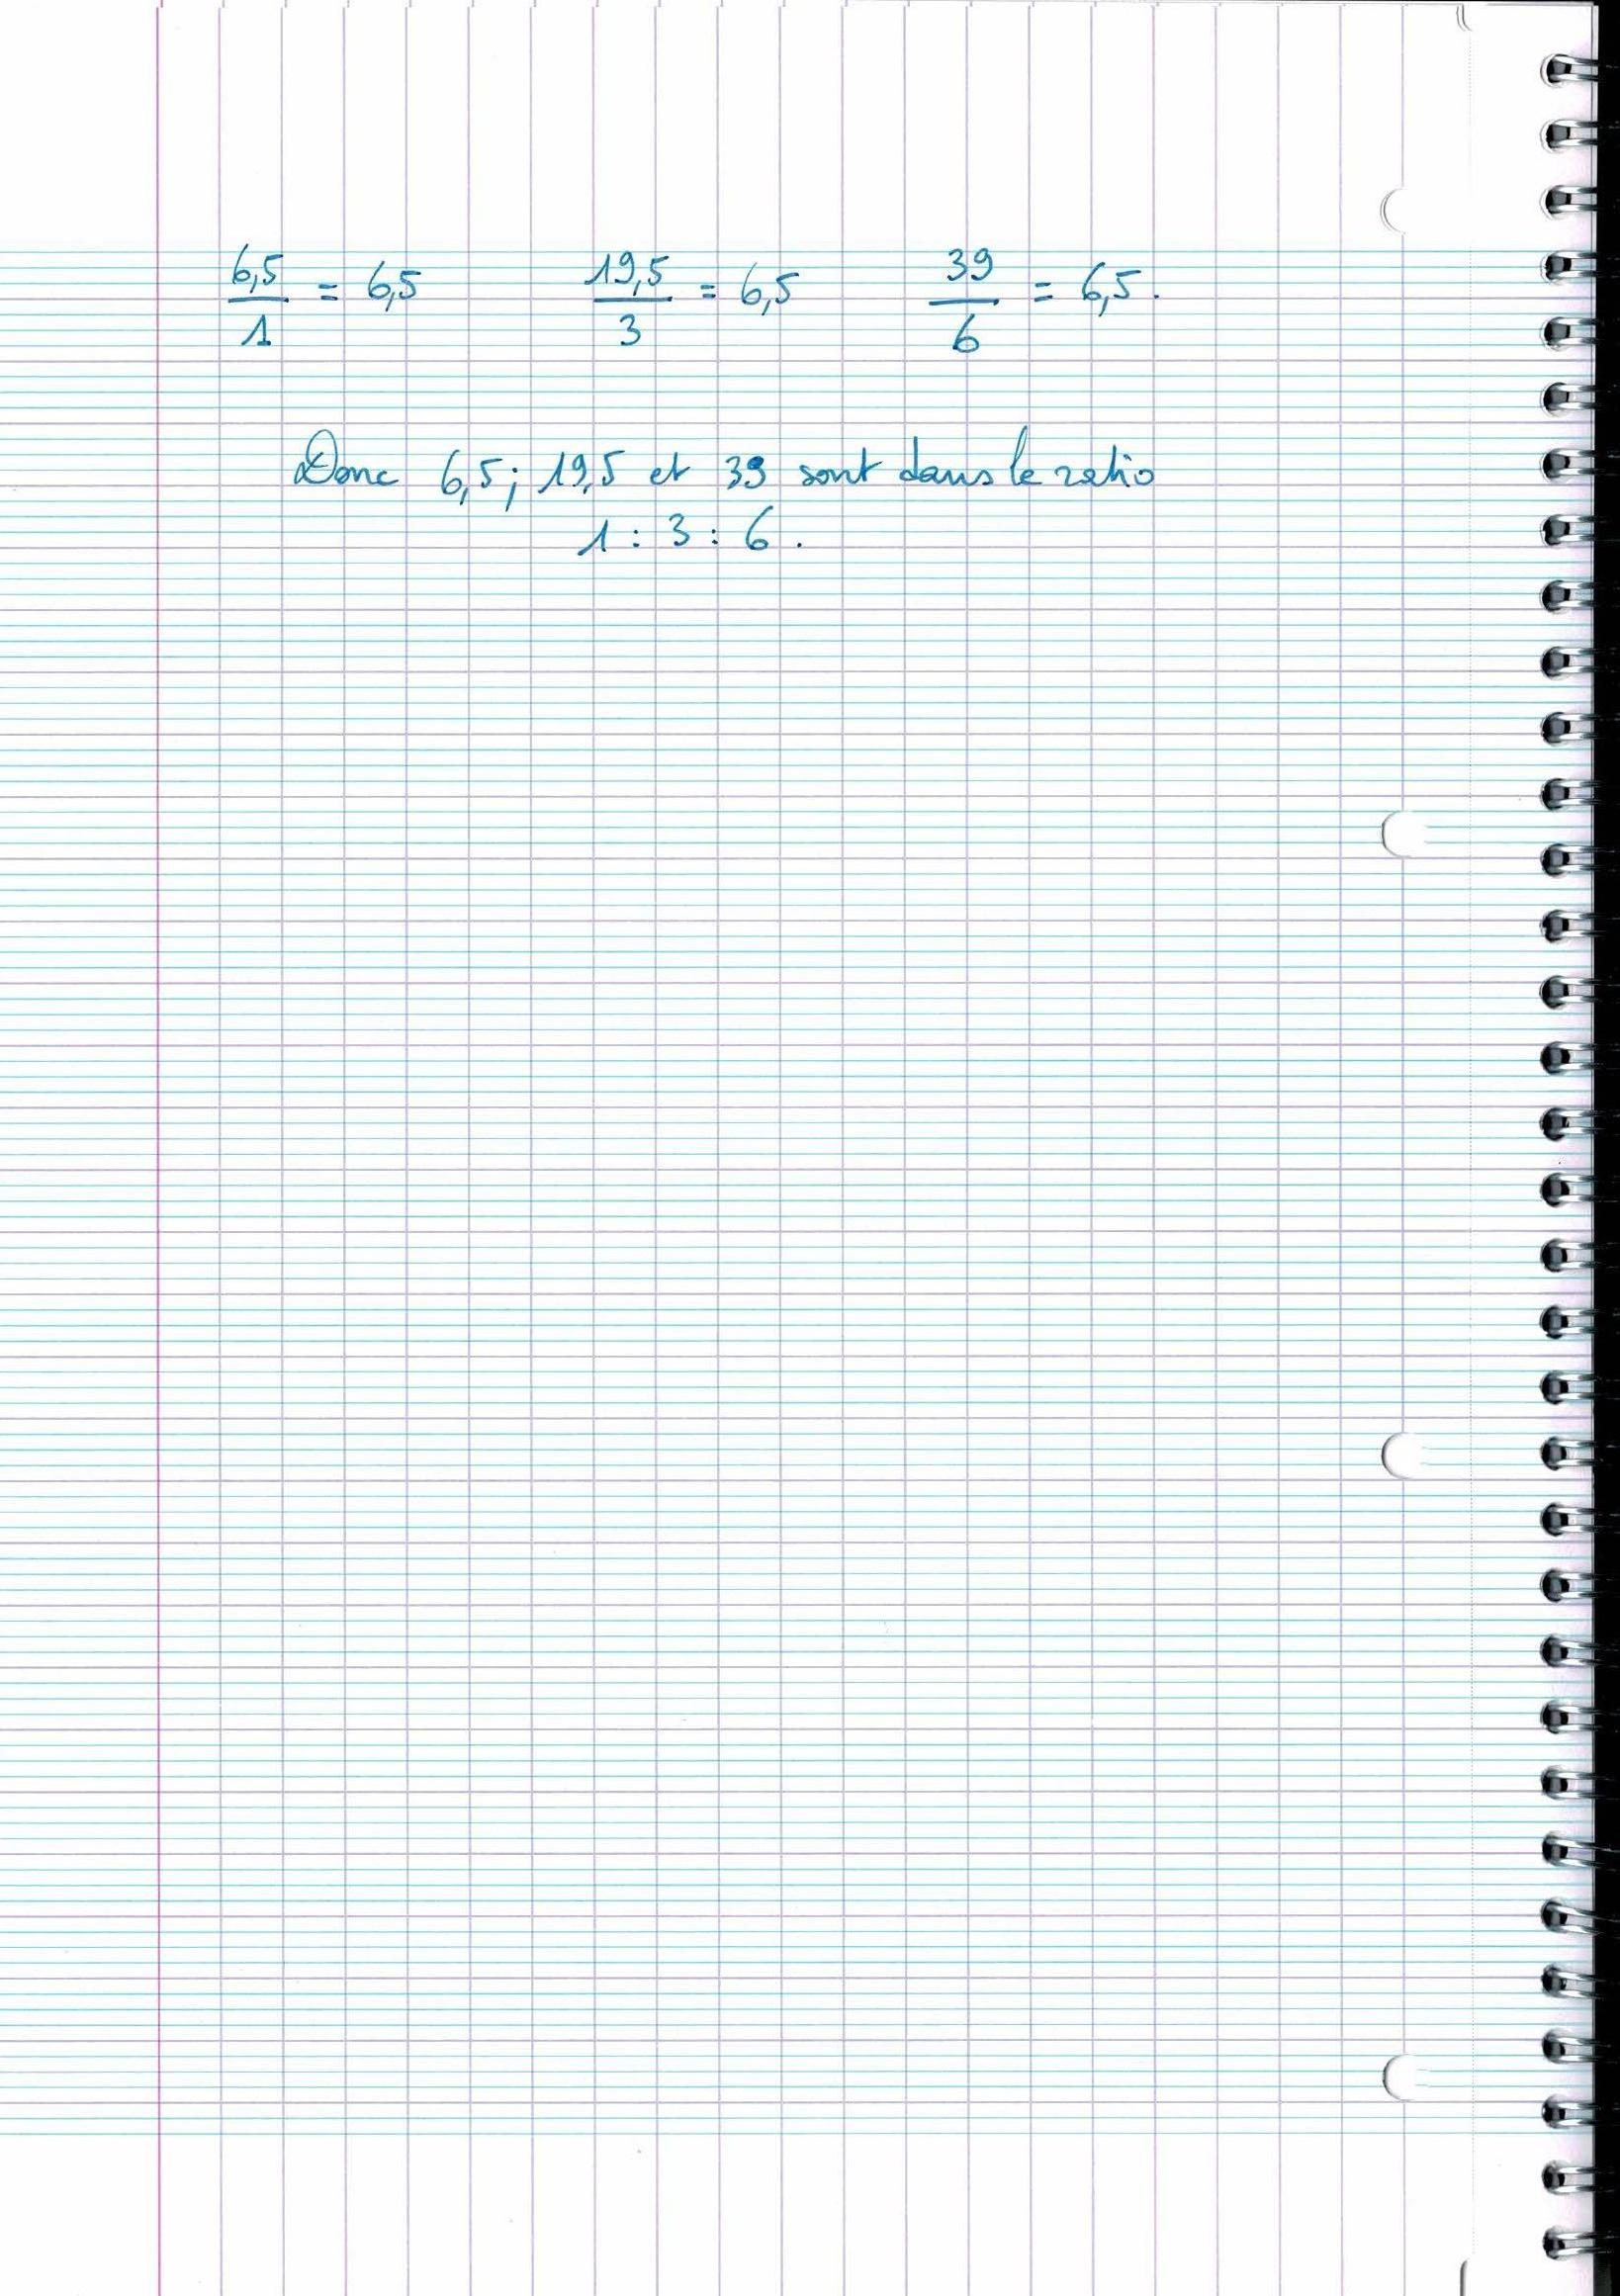 6,5/1 = 6,5 19,5/3 = 6,5 39/6 = 6,5.
Donc 6,5 ; 19,5 et 39 sont dans le ratio
1 : 3 : 6.